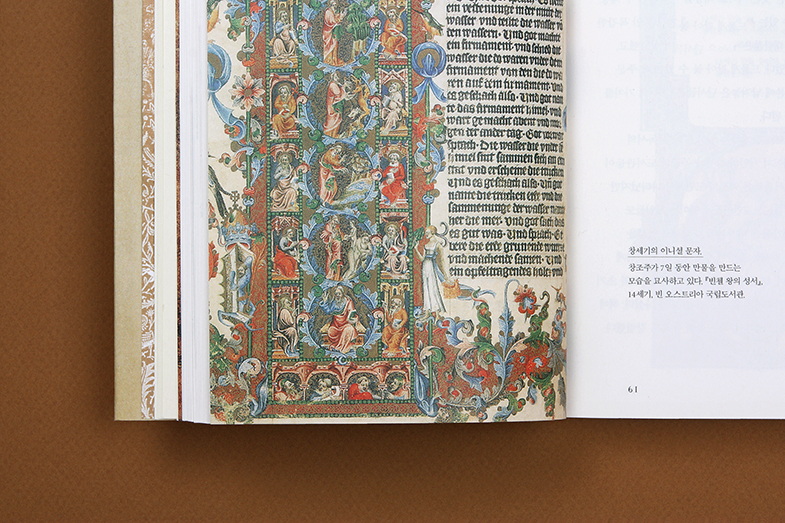 ein vestenunge in der mitte der
wasser vnd teilte die wasser vō
den wassern · Vnd got machte
ein firmament · vnd schied die
wasser die do waren vnder dem
firmament van den die do wa
ren auff dem firmament · Vnd
es geschach also · Vnd got nan
te das firmament himel · vnd
wart gemacht abent vnd mor
gen der ander tag · Got
sprach · Die wasser die vnder
himel sint sammen sich an ein
stat vnd erscheine die trucken
Vnd es geschach also · Vnd got
nante die trucken erde vnd die
sammenunge der wasser nante
her die mer · vnd got sach das
es gut was · Vnd sprach · Ge
bere die erde grunende wurtz
vnd machende samen · Vnd
ein opfeltragendes holtz vnd
창세기의 이니셜 문자.
창조주가 7일 동안 만물을 만드는
모습을 묘사하고 있다. 『벤첼 왕의 성서』,
14세기, 빈 오스트리아 국립도서관.
61